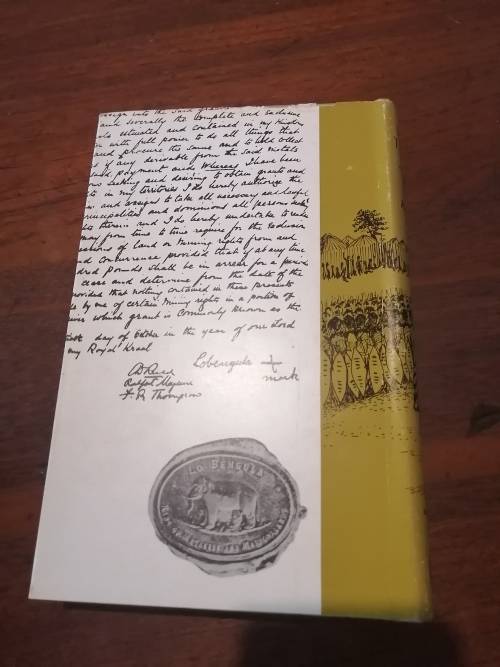 assign into the said grantees
and severally the complete and exclusive
als situated and contained in my Kingdoms
er with full power to do all things that
and procure the same and to hold collect
if any derivable from the said metals
said payment and Whereas I have been
ons seeking and desiring to obtain grants and
ts in my territories I do hereby authorise the
s and assigns to take all necessary and lawful
principalities and dominions all persons seeking
hts therein and I do hereby undertake to render
may from time to time require for the exclusion
cessions of land or mining rights from and
nd concurrence provided that if at any time
dred pounds shall be in arrear for a period
cease and determine from the date of the
provided that nothing contained in these presents
de by me of certain mining rights in a portion of
River which grant is commonly known as the
day of October in the year of our Lord
my Royal Kraal
Lobengula +
mark
C D Rudd
Rochfort Maguire
F. R. Thompson
LO BENGULA
KING OF